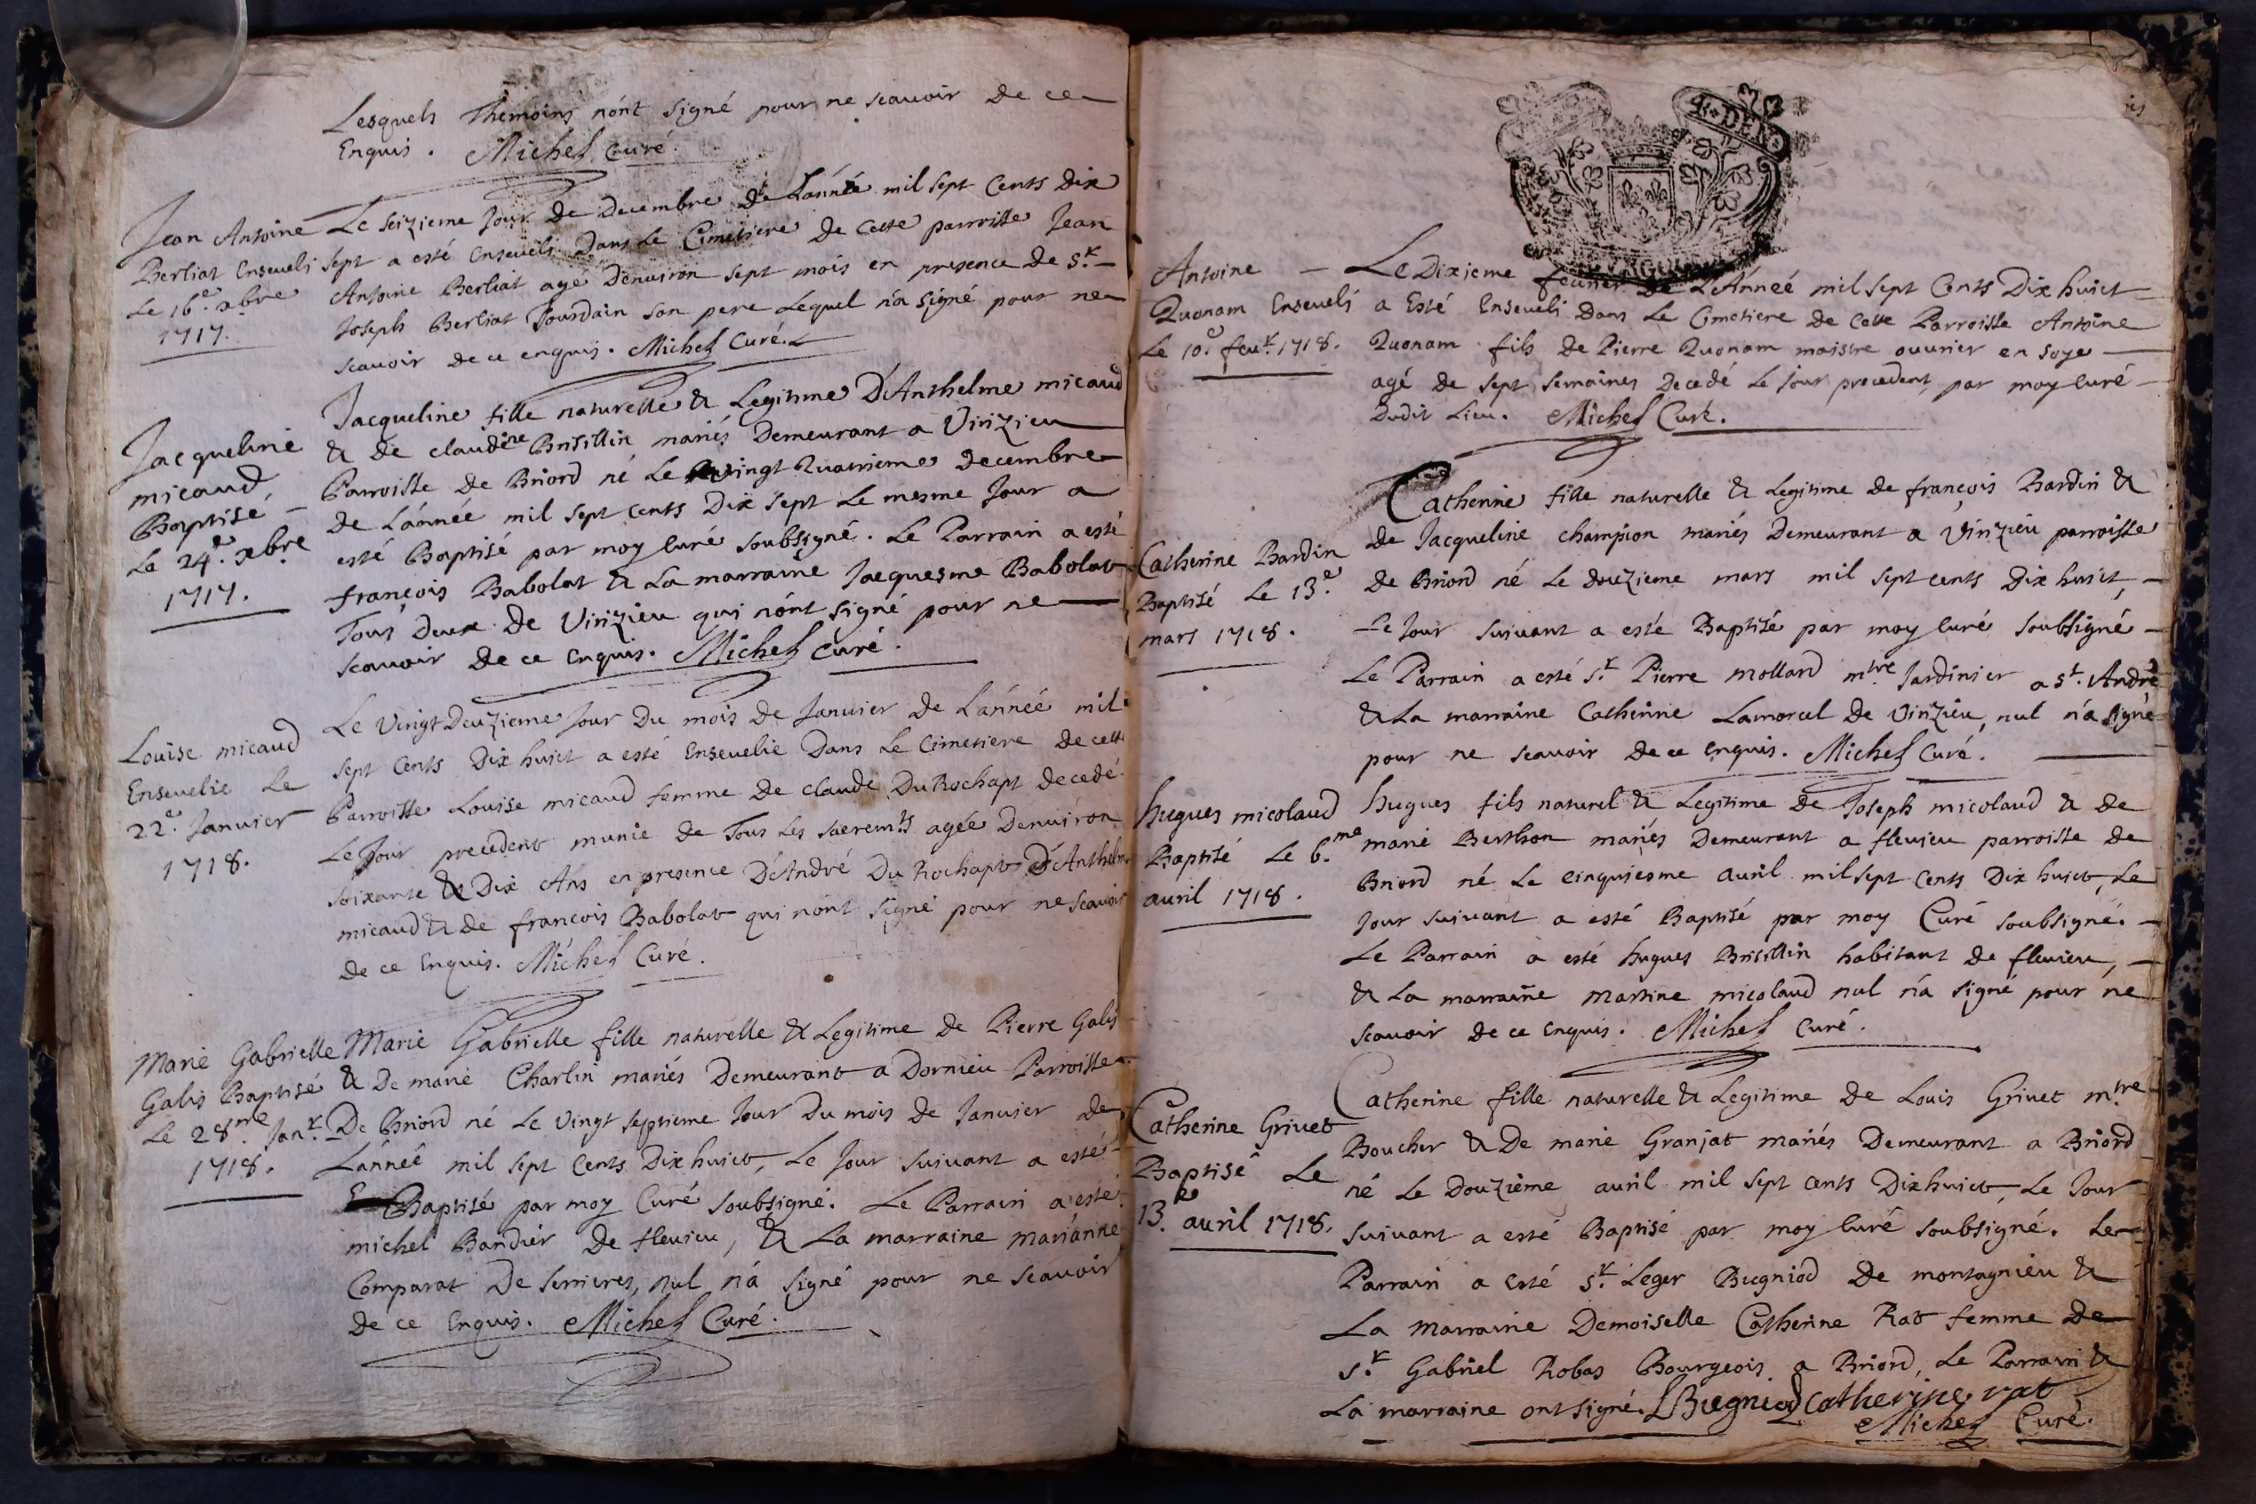 Lesquels Themoins n'ont signé pour ne scavoir de ce
Enquis. Michel curé.
Jean Antoine
Berliat Enseveli
Le 16.e xbre
1717.
Le seizieme Jour de Decembre de L'année mil sept Cents Dix
sept a esté Enseveli Dans Le Cimetiere de cette parroisse Jean
Antoine Berliat agé D'environ sept mois en presence de Sr.
Joseph Berliat Jourdain son pere Lequel n'a signé pour ne
scavoir de ce enquis. Michel Curé.
Jacqueline
micaud
Baptisé
Le 24.e xbre
1717.
Jacqueline fille naturelle & Legitime D'Anthelme micaud
& de claudine Brisillin mariés Demeurant a Virizieu
Parroisse de Briord né Le vingt Quatrieme decembre
de L'année mil sept cents Dix sept Le mesme Jour a
esté Baptisé par moy Curé soubsigné. Le Parrain a esté
françois Babolat & La marraine Jacquesme Babolat
Tous Deux de Virizieu qui n'ont signé pour ne
scavoir de ce Enquis. Michel Curé.
Louise micaud
Ensevelie Le
22.e Janvier
1718.
Le Vingt Deuzieme Jour Du mois de Janvier de L'année mil
sept Cents Dix huict a esté Ensevelie Dans Le Cimetiere de cette
Parroisse Louise micaud femme de claude Du Rochapt decedé
Le Jour precedent munie de Tous Les sacremts agée Denviron
soixante & Dix Ans en presence D'André Du Rochapt D'Anthelme
micaud & de françois Babolat qui n'ont signé pour ne scavoir
de ce Enquis. Michel Curé.
Marie Gabrielle
Galis Baptisé
Le 28.me Janr.
1718.
Marie Gabrielle fille naturelle & Legitime de Pierre Galis
& De marie Charlin mariés Demeurant a Dornieu Parroisse
De Briord né Le Vingt septieme Jour Du mois de Janvier de
L'année mil sept Cents Dix huict, Le Jour suivant a esté
Baptisé par moy Curé soubsigné. Le Parrain a esté
michel Bandier de flevieu, & La marraine marianne
Comparat De serrieres, nul n'a signé pour ne scavoir
de ce Enquis. Michel Curé.
Antoine
Quonam Enseveli
Le 10.e fevr. 1718.
Le Dixieme fevrier de L'Année mil sept Cents Dix huict
a Esté Enseveli Dans Le Cimetiere de Cette Parroisse Antoine
Quonam fils de Pierre Quonam maistre ouvrier en soye
agé de sept semaines Decedé Le Jour precedent par moy Curé
Dudit Lieu. Michel Curé.
Catherine Bardin
Baptisé Le 13.e
mars 1718.
Catherine fille naturelle & Legitime de françois Bardin &
de Jacqueline champion mariés Demeurant a Virizieu parroisse
de Briord né Le douzieme mars mil sept cents Dix huict,
Le Jour suivant a esté Baptisé par moy Curé soubsigné
Le Parrain a esté Sr. Pierre mollard mtre Jardinier a St. André
& La marraine Catherine Lamorcel de Virizieu, nul n'a signé
pour ne scavoir de ce Enquis. Michel Curé.
hugues micolaud
Baptisé Le 6.me
avril 1718.
hugues fils naturel & Legitime de Joseph micolaud & de
marie Berthon mariés Demeurant a flevieu parroisse de
Briord né Le cinquiesme avril mil sept Cents Dix huict, Le
Jour suivant a esté Baptisé par moy Curé soubsigné.
Le Parrain a esté hugues Brisillin habitant de flevieu,
& La marraine Martine micolaud nul n'a signé pour ne
scavoir de ce Enquis. Michel Curé.
Catherine Grivet
Baptisé Le
13.e avril 1718.
Catherine fille naturelle & Legitime de Louis Grivet mtre
Boucher & De marie Granjat mariés Demeurant a Briord
né Le Douzième avril mil sept cents Dix huict, Le Jour
suivant a esté Baptisé par moy Curé soubsigné. Le
Parrain a Esté Sr. Leger Bugniod de montagnieu &
La Marraine Demoiselle Catherine Rat femme de
Sr. Gabriel Robas Bourgeois a Briord, Le Parrain &
La marraine ont signé. LBugniod catherine rat
Michel Curé.